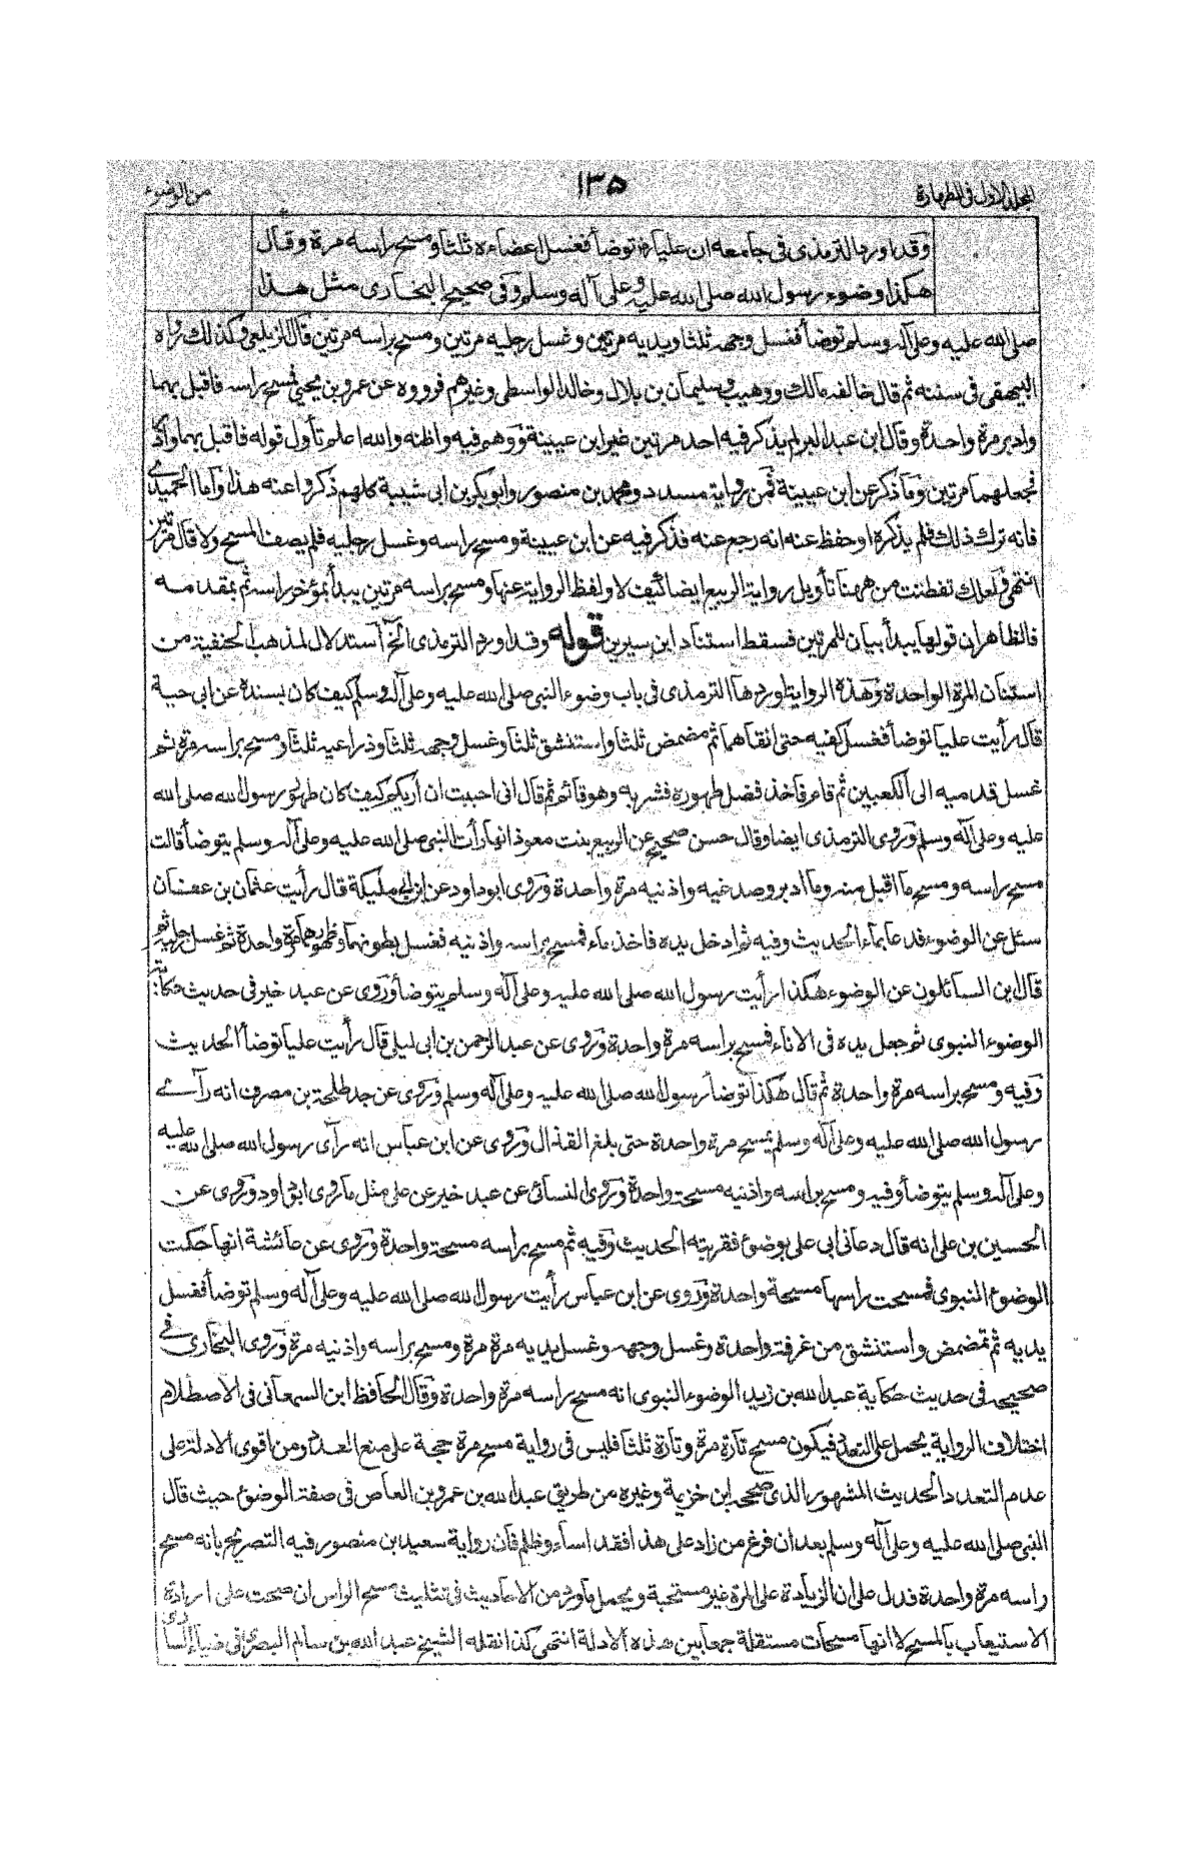 المجلد الاول فى الطهارة
١٣٥
من الوضوء
وقد اورد الترمذى فى جامعه ان عليا رض توضأ فغسل اعضاءه ثلثا ومسح راسه مرة وقال
هكذا وضوء رسول الله صلى الله عليه وعلى آله وسلم وفى صحيح البخارى مثل هذا
صلى الله عليه وعلى آله وسلم توضأ فغسل وجهه ثلثا ويديه مرتين وغسل رجليه مرتين ومسح براسه مرتين قال الزيلعى وكذلك رواه
البيهقى فى سننه ثم قال خالفه مالك ووهيب وسليمان بن بلال وخالد الواسطى وغيرهم فرووه عن عمرو بن يحيى فمسح براسه فاقبل بهما
وادبر مرة واحدة وقال ابن عبد البر لم يذكر فيه احد مرتين غير ابن عيينة ووهم فيه واظنه والله اعلم تأول قوله فاقبل بهما وادبر
فجعلهما مرتين وما ذكر عن ابن عيينة فمن رواية مسدد ومحمد بن منصور وابو بكر بن ابى شيبة كلهم ذكروا عنه هذا واما الحميدى
فانه ترك ذلك فلم يذكره او حفظ عنه انه رجع عنه فذكر فيه عن ابن عيينة ومسح راسه وغسل رجليه فلم يصف المسح ولا قال مرتين
انتهى فلعلك تفطنت من ههنا تأويل رواية الربيع ايضا كيف لا ولفظ الرواية عنها ومسح براسه مرتين يبدأ بمؤخر راسه ثم بمقدمه
فالظاهر ان قولها يبدأ بيان للمرتين فسقط استناد ابن سيرين قوله وقد اورد الترمذى الخ استدلال لمذهب الحنفية من
استنان المرة الواحدة وهذه الرواية اوردها الترمذى فى باب وضوء النبى صلى الله عليه وعلى آله وسلم كيف كان بسنده عن ابى حية
قال رأيت عليا توضأ فغسل كفيه حتى انقاهما ثم مضمض ثلثا واستنشق ثلثا وغسل وجهه ثلثا وذراعيه ثلثا ومسح براسه مرة ثم
غسل قدميه الى الكعبين ثم قام فاخذ فضل طهوره فشربه وهو قائم ثم قال انى احببت ان أريكم كيف كان طهور رسول الله صلى الله
عليه وعلى آله وسلم وروى الترمذى ايضا وقال حسن صحيح عن الربيع بنت معوذ انها رأت النبى صلى الله عليه وعلى آله وسلم يتوضأ قالت
مسح راسه ومسح ما اقبل منه وما ادبر وصدغيه واذنيه مرة واحدة وروى ابو داود عن ابن ابى مليكة قال رأيت عثمان بن عفان
سئل عن الوضوء فدعا بماء الحديث وفيه ثم ادخل يده فاخذ ماء فمسح براسه واذنيه فغسل بطونهما وظهورهما مرة واحدة ثم غسل رجليه ثم
قال اين السائلون عن الوضوء هكذا رأيت رسول الله صلى الله عليه وعلى آله وسلم يتوضأ وروى عن عبد خير فى حديث حكاية
الوضوء النبوى ثم جعل يده فى الاناء فمسح براسه مرة واحدة وروى عن عبد الرحمن بن ابى ليلى قال رأيت عليا توضأ الحديث
وفيه ومسح براسه مرة واحدة ثم قال هكذا توضأ رسول الله صلى الله عليه وعلى آله وسلم وروى عن جد طلحة بن مصرف انه رأى
رسول الله صلى الله عليه وعلى آله وسلم يمسح مرة واحدة حتى بلغ القذال وروى عن ابن عباس انه رأى رسول الله صلى الله عليه
وعلى آله وسلم يتوضأ وفيه ومسح براسه واذنيه مسحة واحدة وروى النسائى عن عبد خير عن على مثل ما روى ابو داود وروى عن
الحسين بن على انه قال دعانى ابى على بوضوء فقربته الحديث وفيه ثم مسح براسه مسحة واحدة وروى عن عائشة انها حكت
الوضوء النبوى فمسحت راسها مسحة واحدة وروى عن ابن عباس رأيت رسول الله صلى الله عليه وعلى آله وسلم توضأ فغسل
يديه ثم تمضمض واستنشق من غرفة واحدة وغسل وجهه وغسل يديه مرة مرة ومسح براسه واذنيه مرة وروى البخارى فى
صحيحه فى حديث حكاية عبد الله بن زيد الوضوء النبوى انه مسح راسه مرة واحدة وقال الحافظ ابن السمعانى فى الاصطلام
اختلاف الرواية يحمل على التعدد فيكون مسح تارة مرة وتارة ثلثا فليس فى رواية مسح مرة حجة على منع العدد ومن اقوى الادلة على
عدم التعدد الحديث المشهور الذى صححه ابن خزيمة وغيره من طريق عبد الله بن عمرو بن العاص فى صفة الوضوء حيث قال
النبى صلى الله عليه وعلى آله وسلم بعد ان فرغ من زاد على هذا فقد اساء وظلم فان رواية سعيد بن منصور فيه التصريح بانه مسح
راسه مرة واحدة فدل على ان الزيادة على المرة غير مستحبة ويحمل ما ورد من الاحاديث فى تثليث مسح الراس ان صحت على ارادة
الاستيعاب بالمسح لا انها مسحات مستقلة جمعا بين هذه الادلة انتهى كذا نقله الشيخ عبد الله بن سالم البصرى فى ضياء السارى